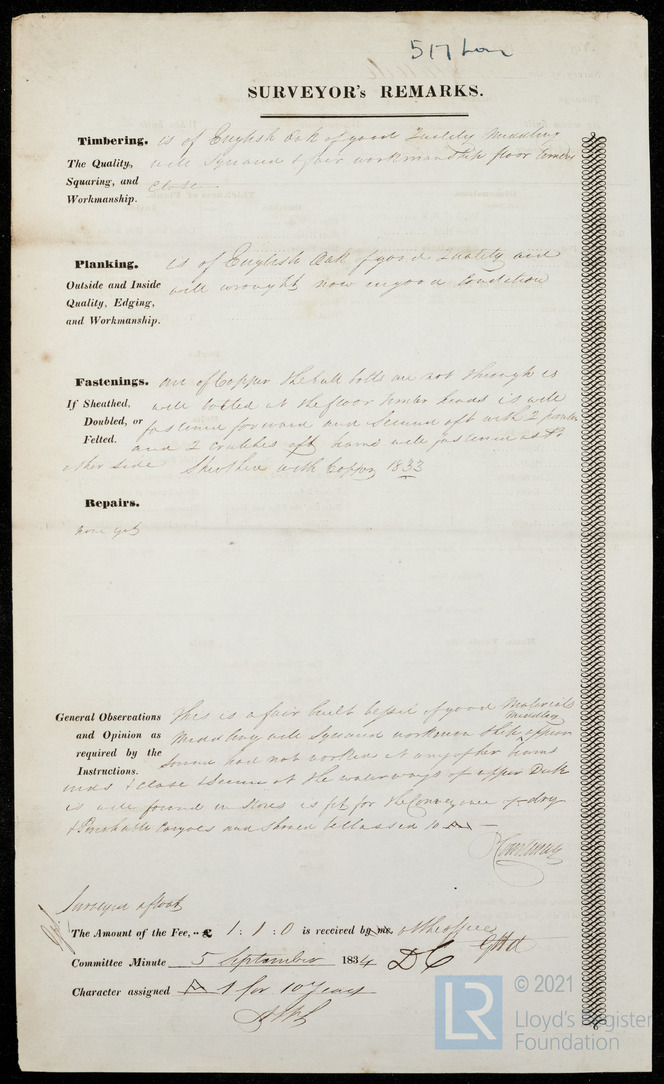 517 Lon
SURVEYOR's REMARKS.
Timbering. is of English Oak of good Quality Middling
The Quality, well Squared & fair workmanship floor timbers
Squaring, and Close
Workmanship.
Planking. is of English Oak of good Quality and
Outside and Inside well wrought now in good Condition
Quality, Edging,
and Workmanship.
Fastenings. are of Copper the butt bolts are not through is
If Sheathed, well bolted at the floor timber heads is well
Doubled, or fastened forward and Secured aft with 2 pointers
Felted. and 2 crutches aft beams well fastened as pr
other side Sheathed with Copper 1833
Repairs.
None yet
General Observations This is a fair built Vessel of good Materials
and Opinion as Middling well Squared workmanship
Middling
required by the Sound had not worked at any of her beams
Instructions.
ends & close & Secure at the waterways of upper Deck
is well found in Stores is fit for the Conveyance of dry
& Perishable Cargoes and Should be Classed 10 A
Surveyed afloat
The Amount of the Fee, .. £ 1 : 1 : 0 is received by me. at the office
Committee Minute 5 September 1834 DC
Character assigned A 1 for 10 Years
LR
© 2021
Lloyd's Register
Foundation